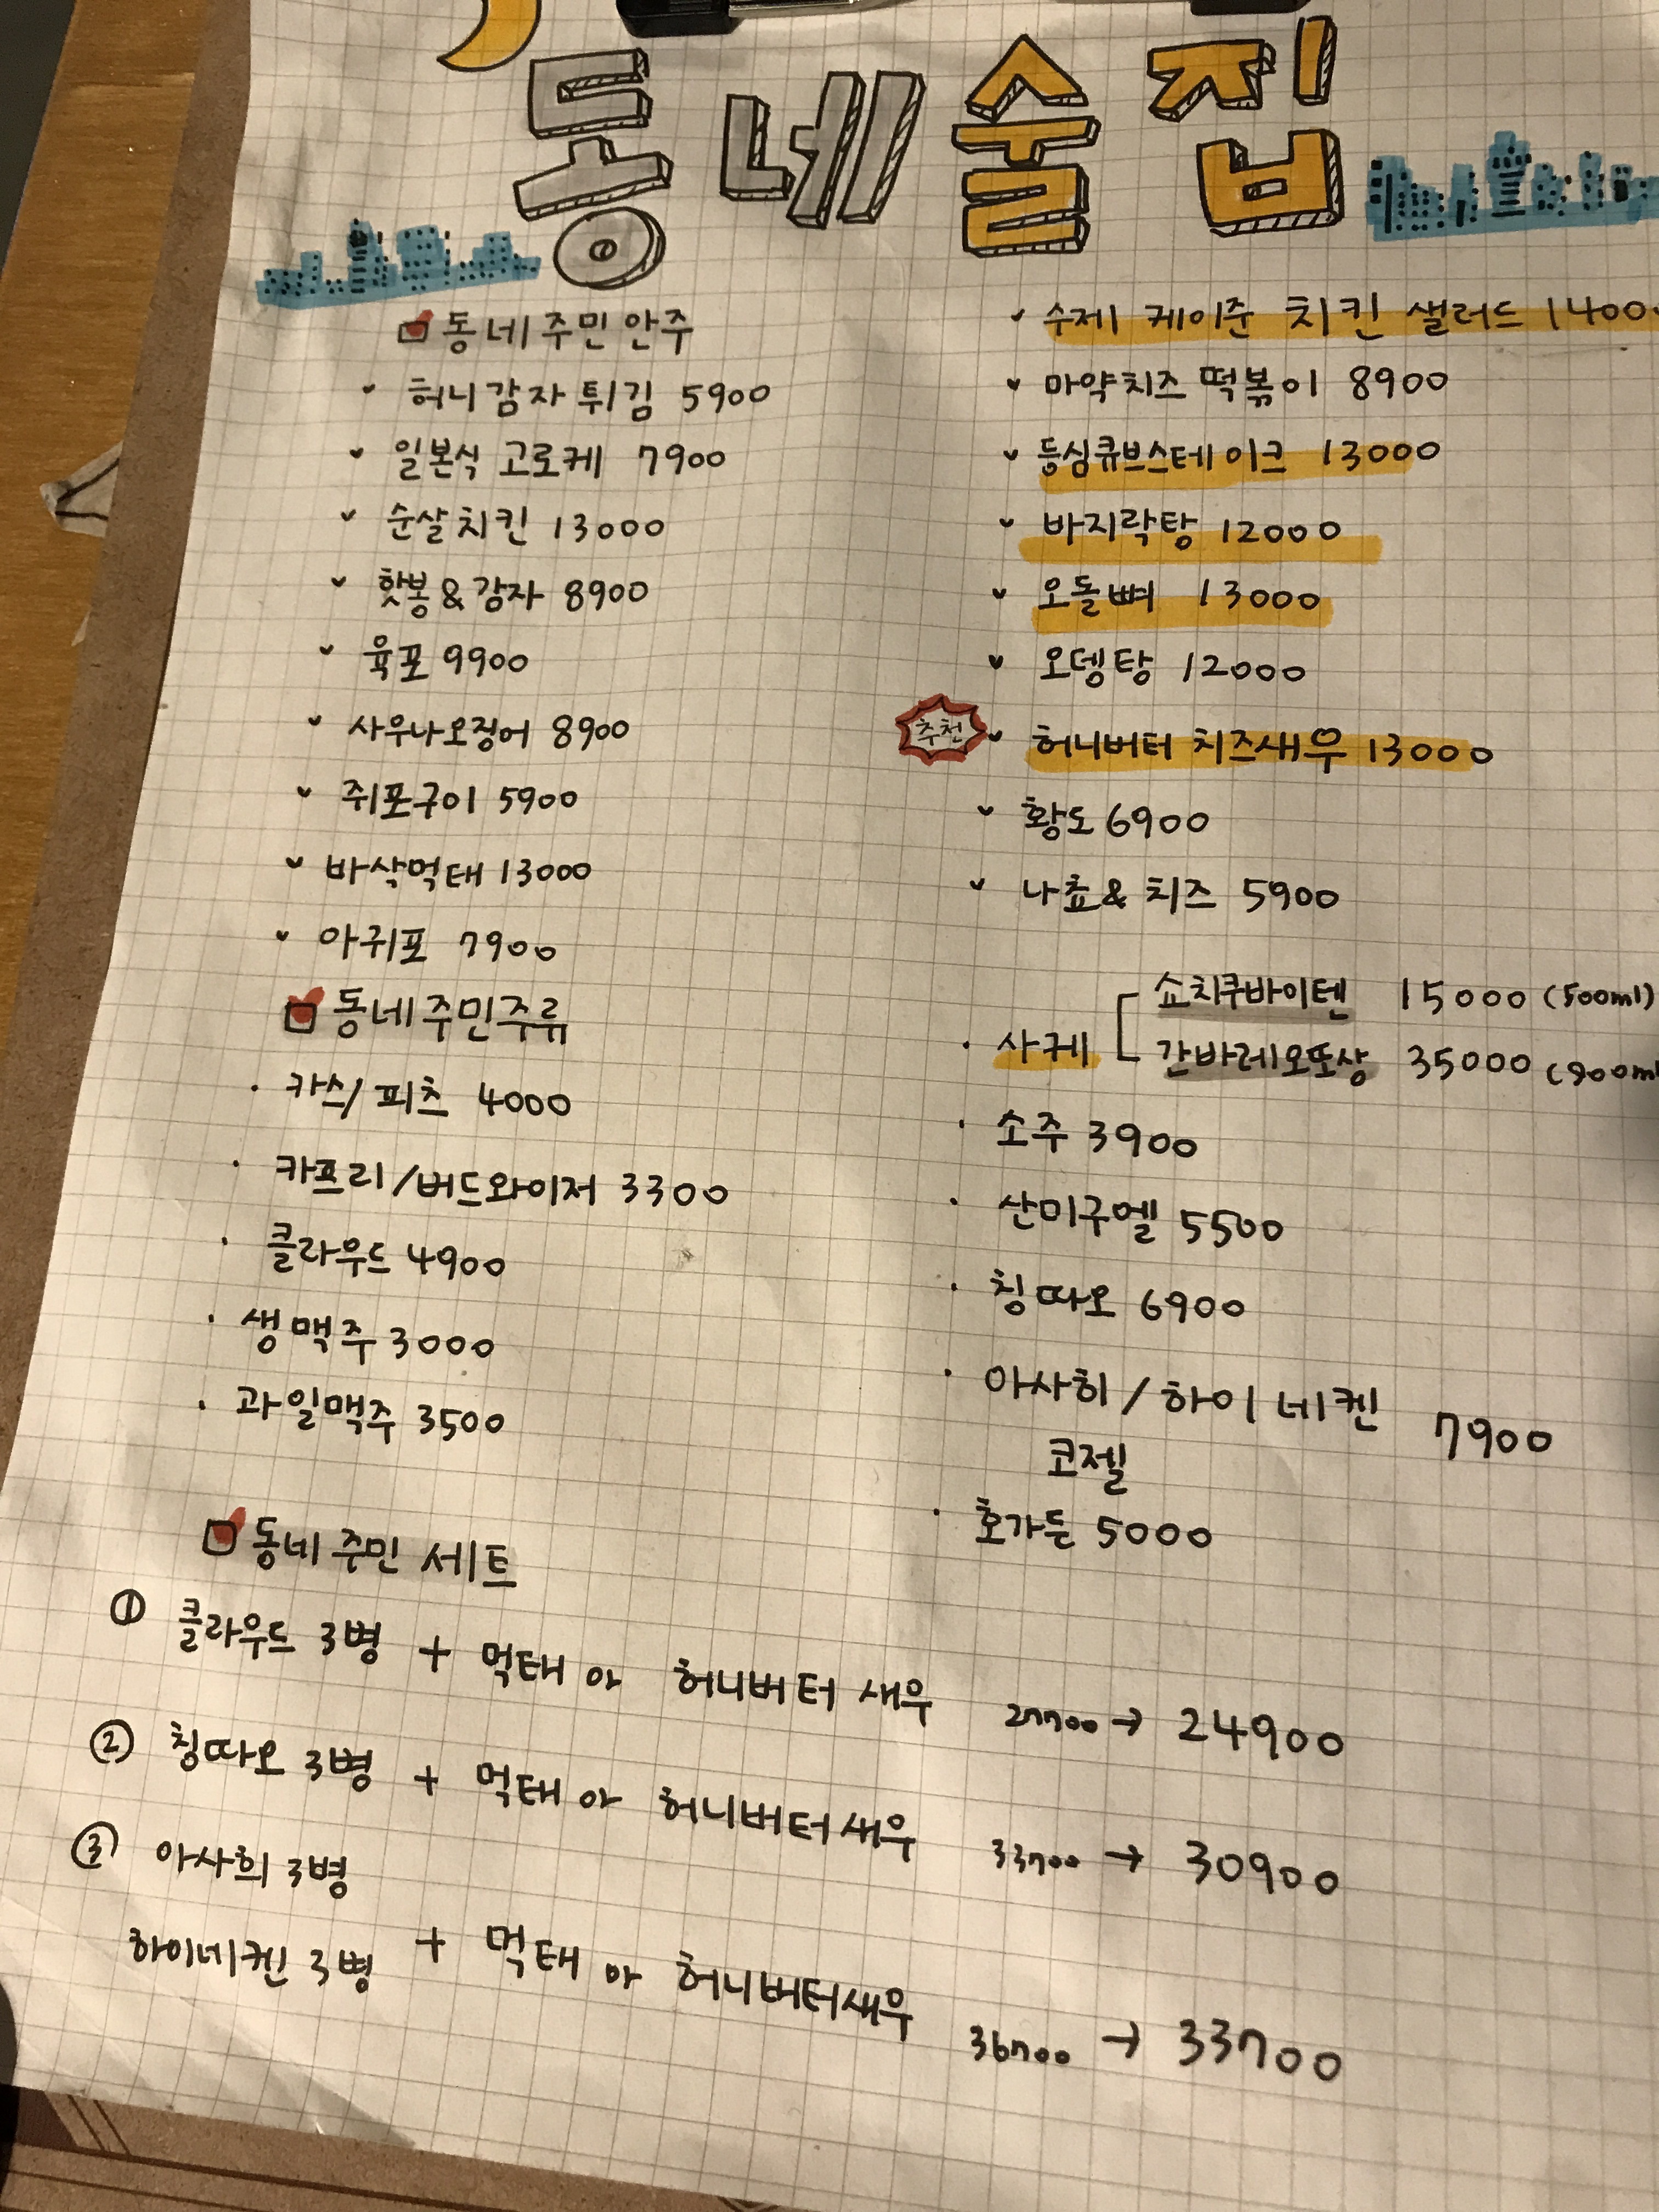 동네술집
동네주민안주
허니감자튀김 5900
일본식 고로케 7900
순살치킨 13000
핫봉&감자 8900
육포 9900
사우나오징어 8900
쥐포구이 5900
바삭먹태 13000
아귀포 7900
수제 케이준 치킨 샐러드 1400
마약치즈 떡볶이 8900
등심큐브스테이크 13000
바지락탕 12000
오돌뼈 13000
오뎅탕 12000
추천 허니버터 치즈새우 13000
황도 6900
나쵸& 치즈 5900
동네주민주류
카스/피츠 4000
카프리/버드와이저 3300
클라우드 4900
생맥주 3000
과일맥주 3500
쇼치쿠바이텐 15000 (500ml)
사케
간바레오또상 35000 (900ml
소주 3900
산미구엘 5500
칭따오 6900
아사히/하이네켄
코젤 7900
호가든 5000
동네주민 세트
① 클라우드 3병 + 먹태 or 허니버터 새우 27700 → 24900
② 칭따오 3병 + 먹태 or 허니버터새우 33700 → 30900
③ 아사희 3병
하이네켄 3병 + 먹태 or 허니버터새우 36700 → 33700